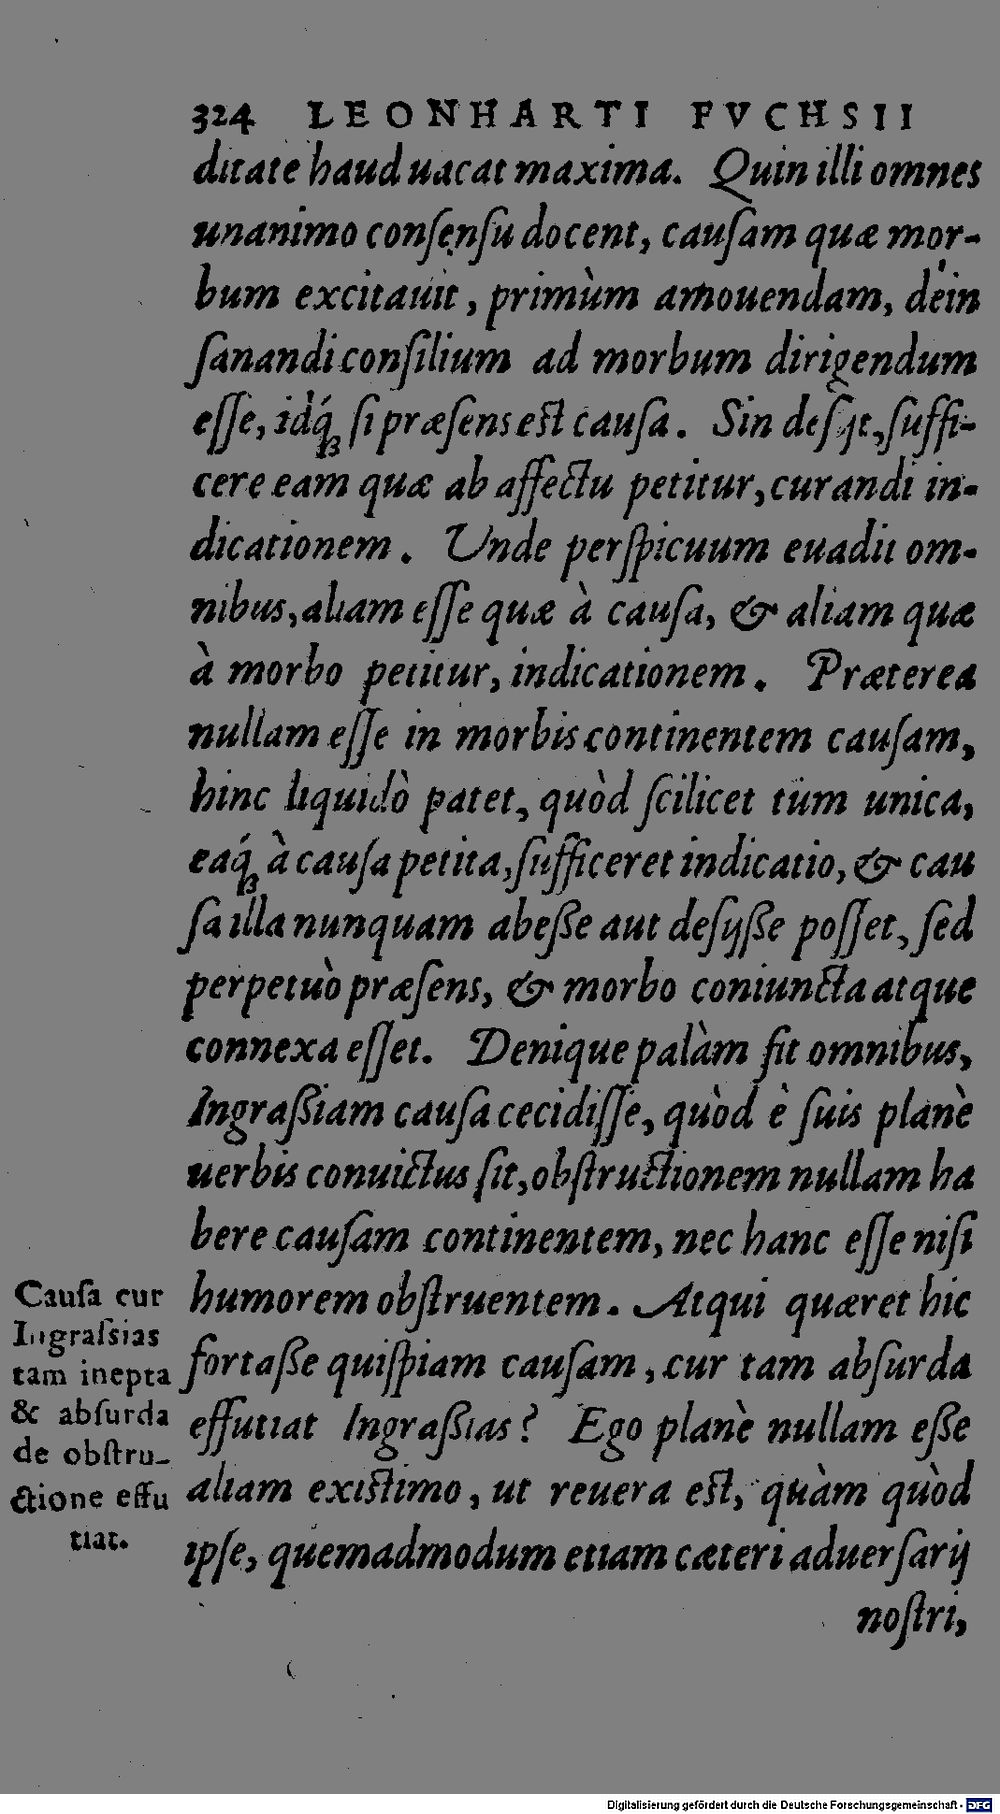 324 LEONHARTI FVCHSII
ditate haud uacat maxima. Quin illi omnes
unanimo conſenſu docent, cauſam quæ mor-
bum excitauit, primùm amouendam, dein
ſanandi conſilium ad morbum dirigendum
eſſe, idq́ꝫ ſi præſens est cauſa. Sin deſijt, ſuffi-
cere eam quæ ab affectu petitur, curandi in-
dicationem. Unde perſpicuum euadit om-
nibus, aliam eſſe quæ à cauſa, & aliam quæ
à morbo petitur, indicationem. Præterea
nullam eſſe in morbis continentem cauſam,
hinc liquidò patet, quòd ſcilicet tùm unica,
eaq́ꝫ à cauſa petita, ſufficeret indicatio, & cau
ſa illa nunquam abeße aut deſijße poſſet, ſed
perpetuò præſens, & morbo coniuncta atque
connexa eſſet. Denique palàm fit omnibus,
Ingraßiam cauſa cecidiſſe, quòd è ſuis planè
uerbis conuictus ſit, obſtructionem nullam ha
bere cauſam continentem, nec hanc eſſe niſi
humorem obſtruentem. Atqui quæret hic
fortaße quiſpiam cauſam, cur tam abſurda
effutiat Ingraßias? Ego planè nullam eße
aliam existimo, ut reuera est, quàm quòd
ipſe, quemadmodum etiam cæteri aduerſarij
noſtri,
Cauſa cur
Ingraſsias
tam inepta
& abſurda
de obſtru-
ctione effu
tiat.
Digitalisierung gefördert durch die Deutsche Forschungsgemeinschaft - DFG